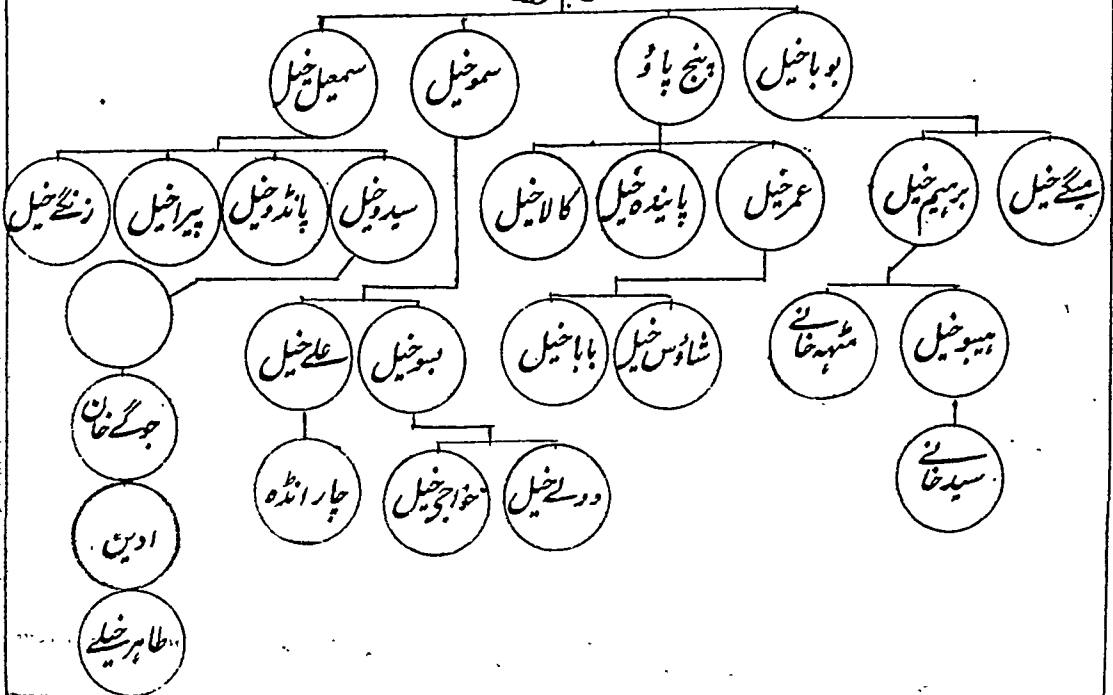 بوبا خیل
پنج پاؤ
سمو خیل
سمعیل خیل
میگے خیل
برہیم خیل
عمر خیل
پایندہ خیل
کالا خیل
سیدو خیل
پانڈو خیل
پیرا خیل
زنگے خیل
ہیبو خیل
مٹہہ خانے
شاؤس خیل
بابا خیل
بسو خیل
علے خیل
جوگے خان
سید خانے
دولے خیل
خواجی خیل
چار انڈہ
ادین
طاہر خیلے